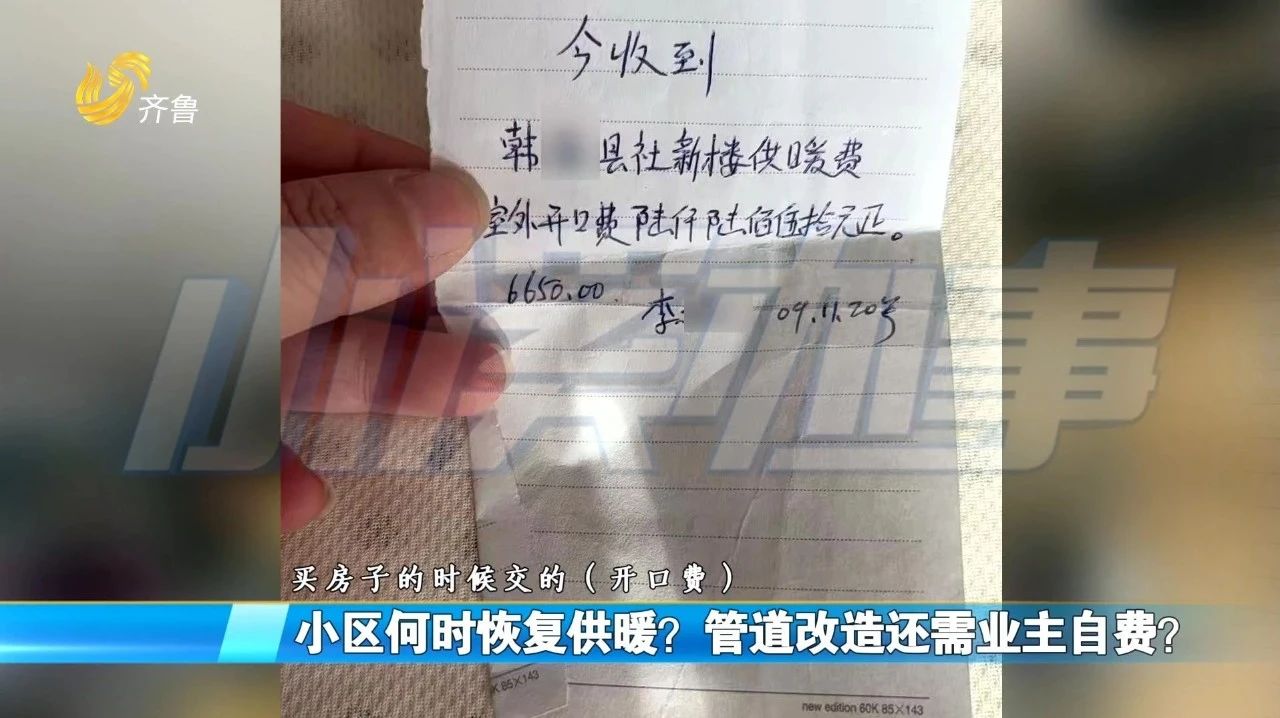 齐鲁
今收到
韩 县社新楼供暖费
室外开口费陆仟陆佰伍拾元正。
6650.00
李 09.11.20号
小溪办事
买房子的时候交的（开口费）
小区何时恢复供暖？管道改造还需业主自费？
K 85×143
new edition 60K 85×143